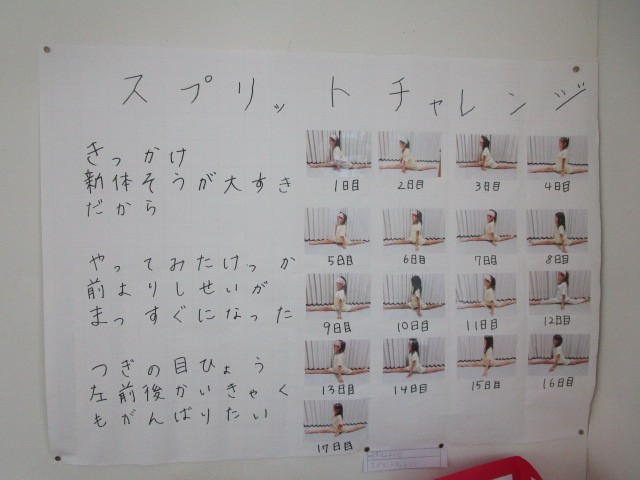 スプリットチャレンジ
きっかけ
新体そうが大すき
だから
やってみたけっか
前よりしせいが
まっすぐになった
つぎの目ひょう
左前後かいきゃく
もがんばりたい
1日目
2日目
3日目
4日目
5日目
6日目
7日目
8日目
9日目
10日目
11日目
12日目
13日目
14日目
15日目
16日目
17日目